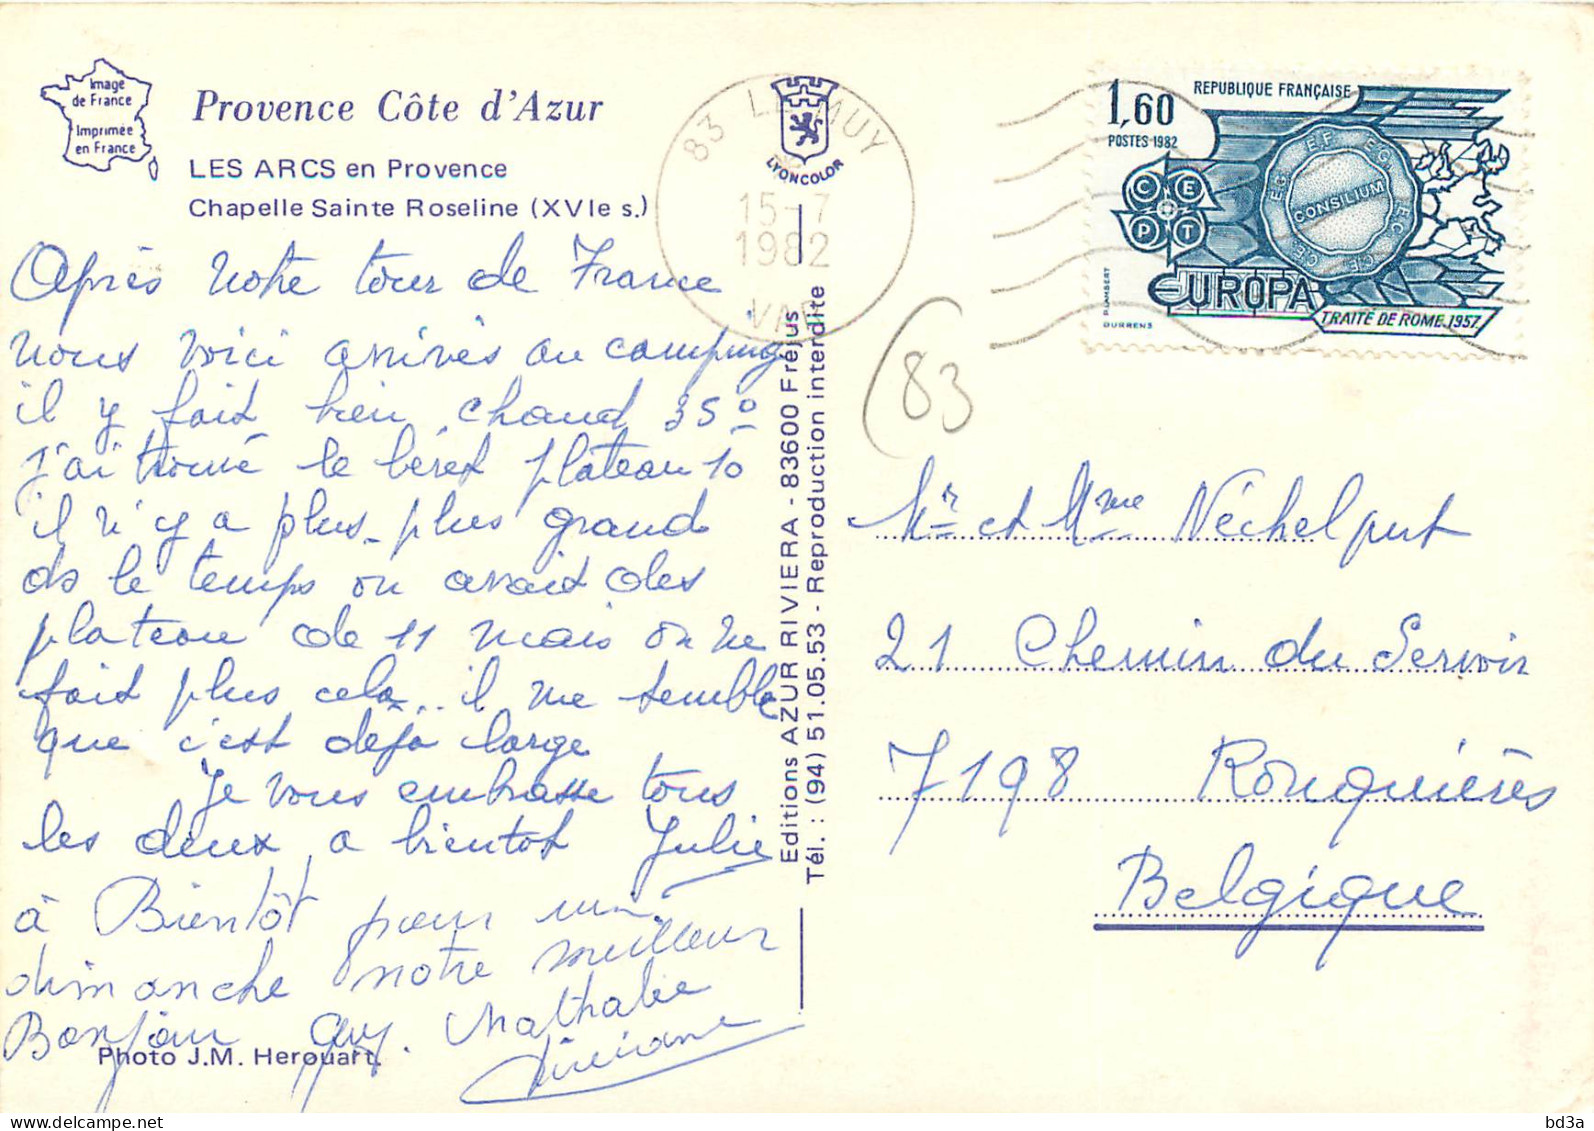 Image
de France
Imprimée
en France
Provence Côte d'Azur
LES ARCS en Provence
Chapelle Sainte Roseline (XVIe s.)
Après notre tour de France
nous voici arrivés au camping
il y fait bien chaud 35°
j'ai trouvé le béret plateau 10
il n'y a plus plus grand
ds le temps on avait des
plateau de 11 mais on ne
fait plus cela.. il me semble
que c'est déjà large
Je vous embrasse tous
les deux a bientot Julie
à Bientôt pour un
dimanche notre meilleur
Bonjour Guy. Nathalie
Viviane
Photo J.M. Herouart.
LYONCOLOR
83 LE MUY
15-7
1982
VAR
Editions AZUR RIVIERA - 83600 Fréjus
Tél. : (94) 51.05.53 - Reproduction interdite
1,60
REPUBLIQUE FRANÇAISE
POSTES 1982
CEPT
CONSILIUM
EUROPA
TRAITÉ DE ROME 1957
P. LAMBERT
DURRENS
(83
Mr et Mme Néchelput
21 Chemin du Servoir
7198 Ronquières
Belgique
bd3a